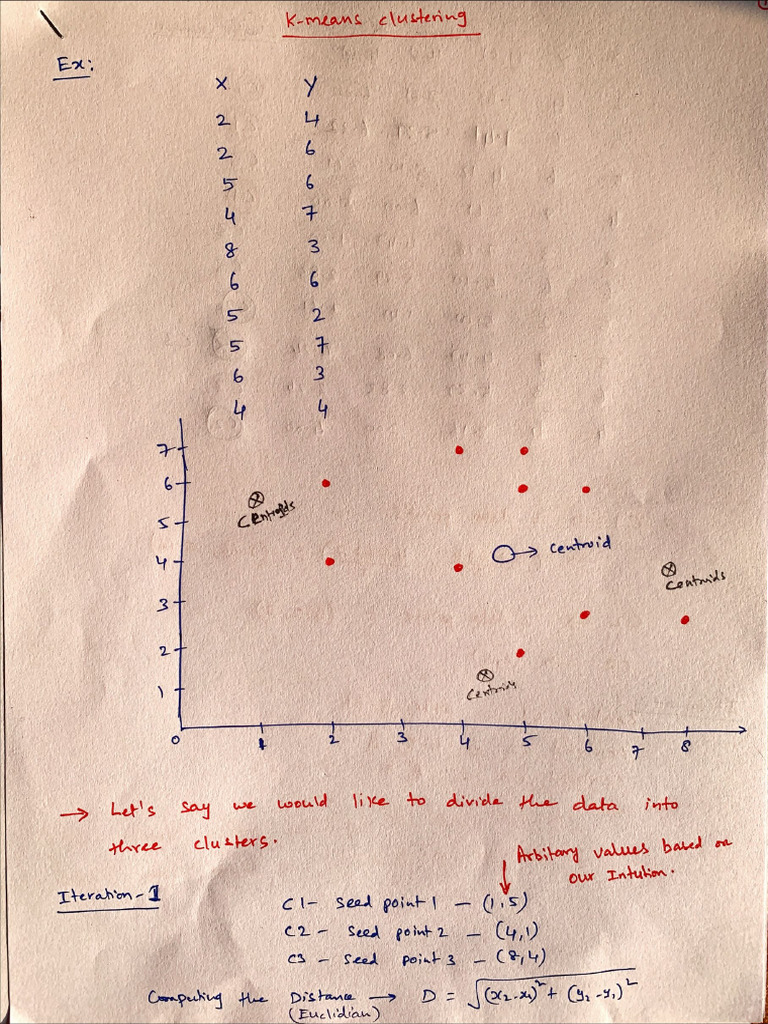 K-means clustering
Ex:
X Y
2 4
2 6
5 6
4 7
8 3
6 6
5 2
5 7
6 3
4 4
7
6
5
4
3
2
1
Centroids
→ Centroid
Centroids
0 1 2 3 4 5 6 7 8
→ Let's say we would like to divide the data into
three clusters.
Arbitary values based on
our Intution.
Iteration-1
C1- Seed point 1 - (1,5)
C2 - Seed point 2 - (4,1)
C3 - Seed point 3 - (8,4)
Computing the Distance → D = √(x₂-x₁)² + (y₂-y₁)²
(Euclidian)